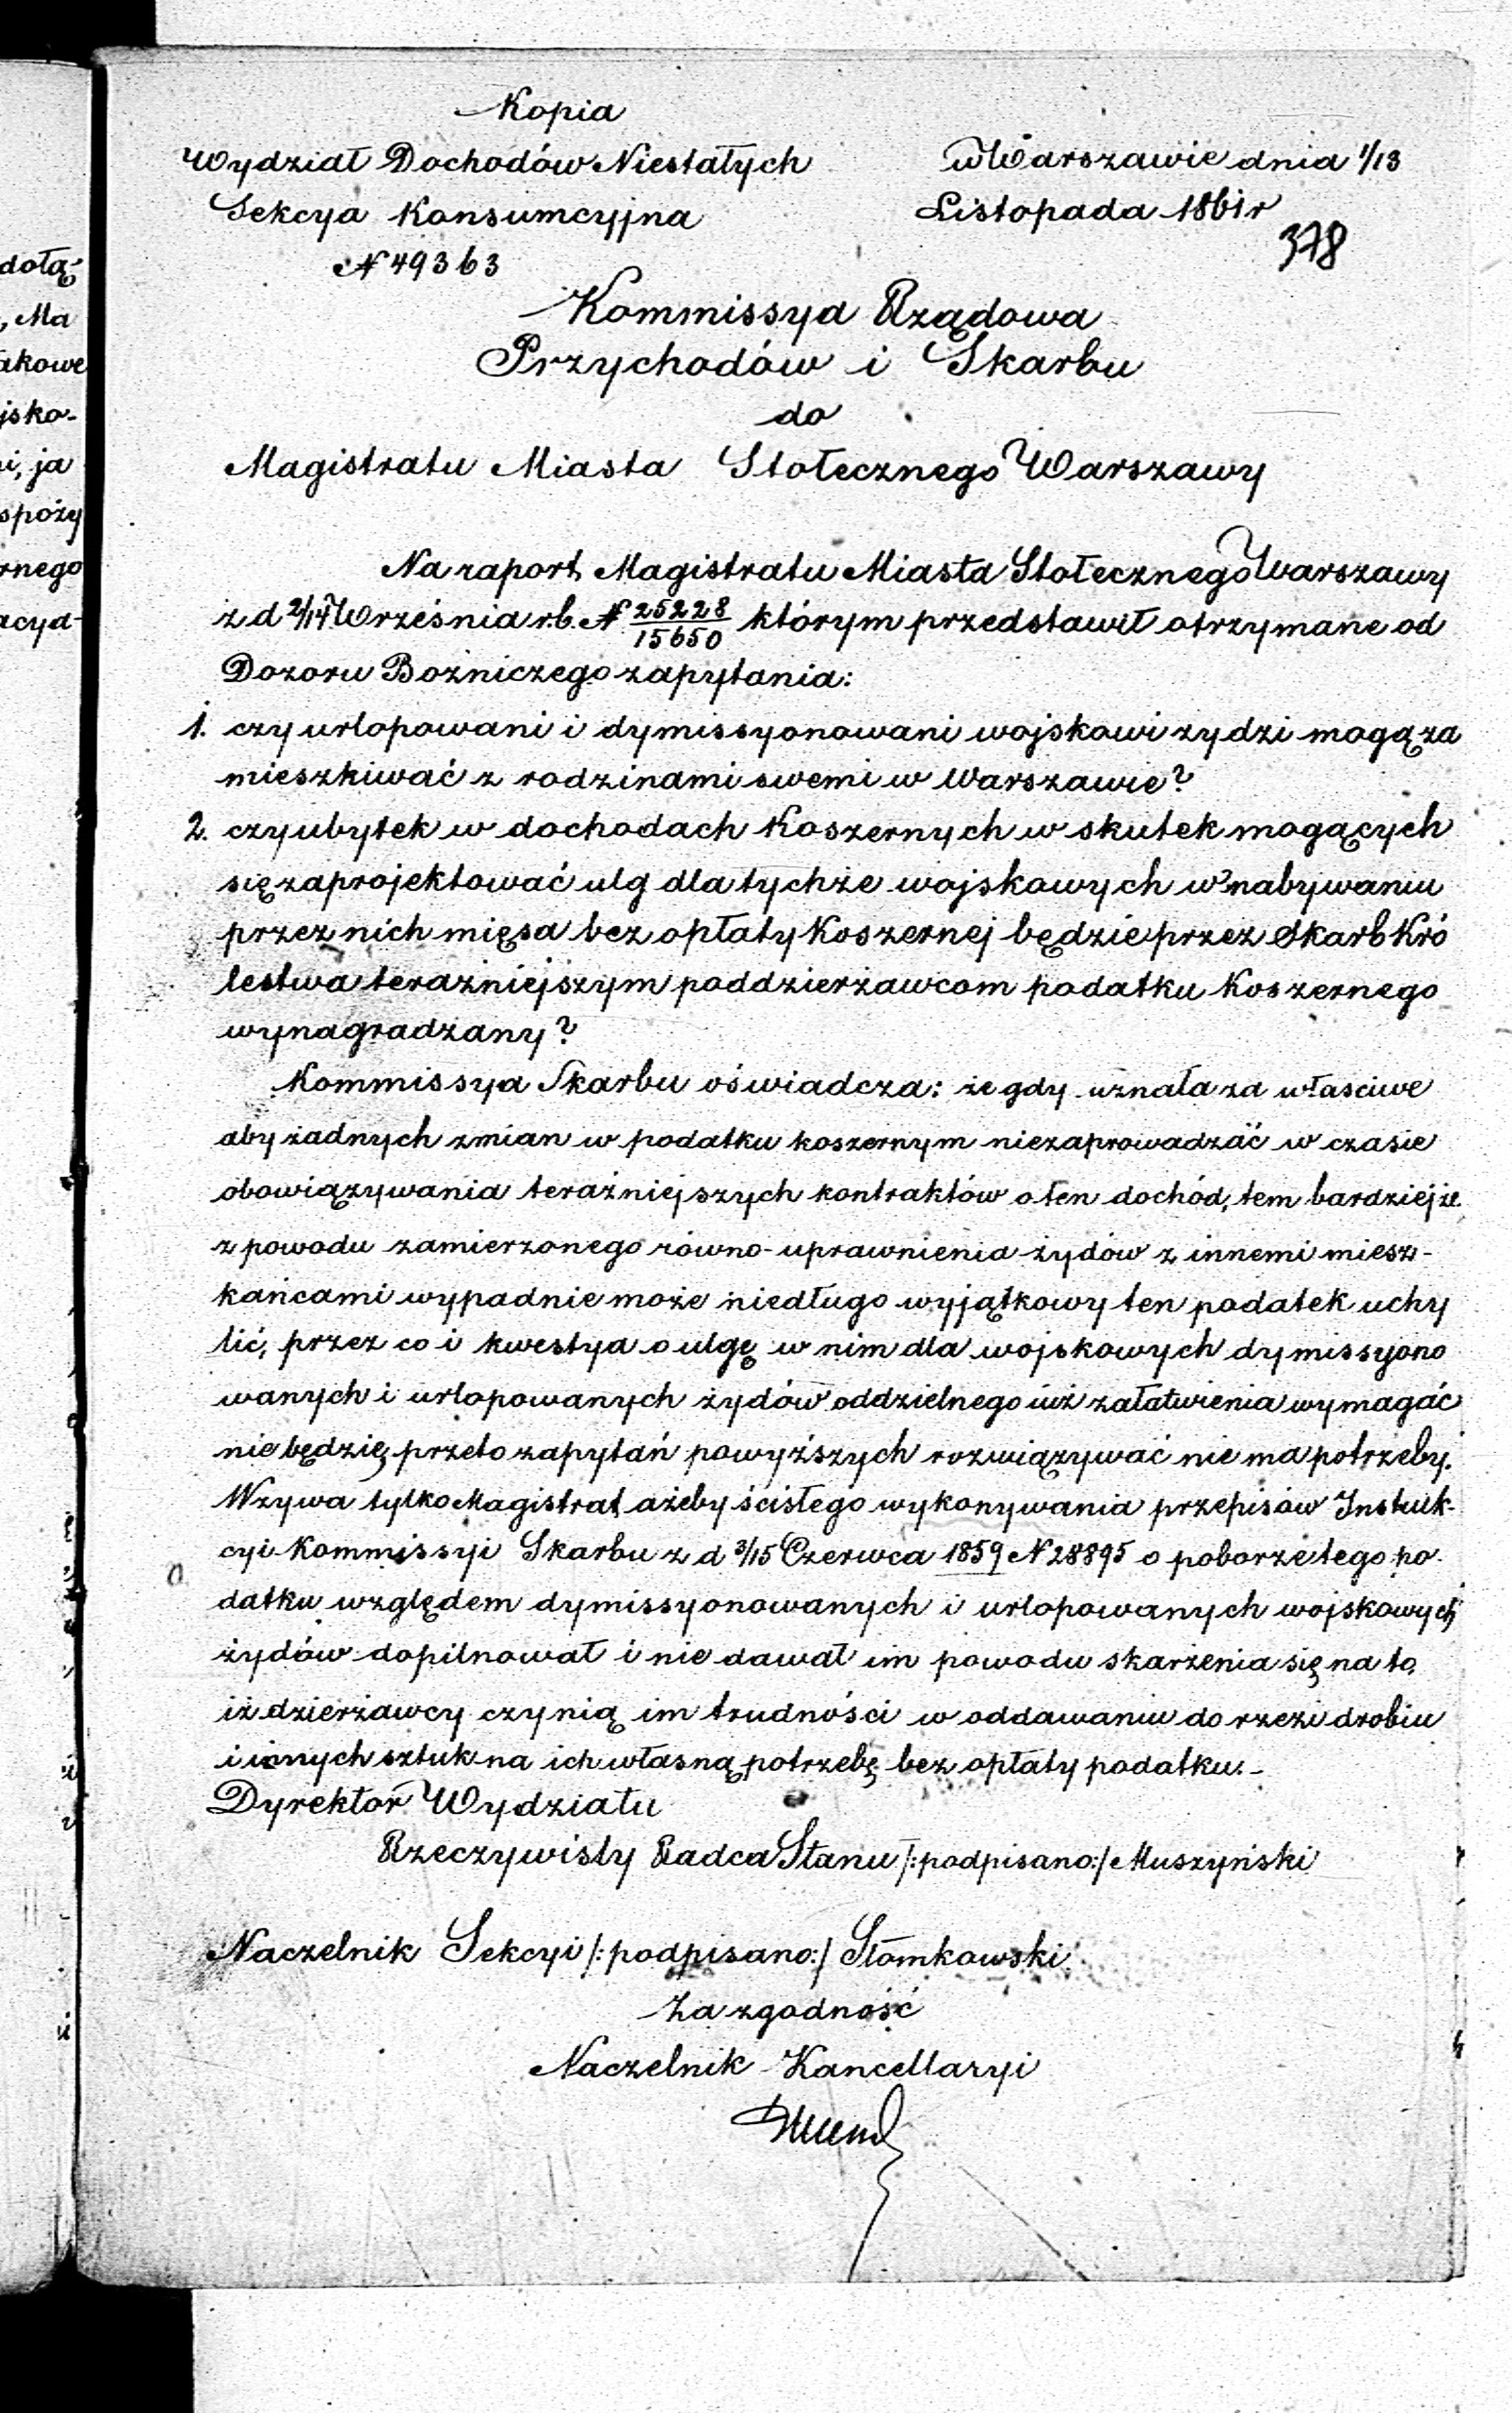 Kopia
Wydział Dochodów Niestałych
Sekcya Konsumcyjna
N 49363
w Warszawie dnia 1/13
Listopada 1861 r
378
Kommissya Rządowa
Przychodów i Skarbu
do
Magistratu Miasta Stołecznego Warszawy
Na raport Magistratu Miasta Stołecznego Warszawy
z d 2/14 Września r.b. N 25228/15650 którym przedstawił otrzymane od
Dozoru Bożniczego zapytania:
1. czy urlopowani i dymissyonowani wojskowi żydzi mogą za
mieszkiwać z rodzinami swemi w Warszawie?
2. czy ubytek w dochodach Koszernych w skutek mogących
się zaprojektować ulg dla tychże wojskowych w nabywaniu
przez nich mięsa bez opłaty Koszernej będzie przez Skarb Kró
lestwa teraźniejszym poddzierżawcom podatku Koszernego
wynagradzany?
Kommissya Skarbu oświadcza: że gdy uznała za właściwe
aby żadnych zmian w podatku koszernym niezaprowadzać w czasie
obowiązywania teraźniejszych kontraktów o ten dochód, tem bardziej że
z powodu zamierzonego równo-uprawnienia żydów z innemi miesz-
kańcami wypadnie może niedługo wyjątkowy ten podatek uchy
lić, przez co i kwestya o ulgę w nim dla wojskowych dymissyono
wanych i urlopowanych żydów oddzielnego iuż załatwienia wymagać
nie będzie, przeto zapytań powyższych rozwiązywać nie ma potrzeby.
Wzywa tylko Magistrat ażeby ścisłego wykonywania przepisów Instruk-
cyi Kommissyi Skarbu z d 3/15 Czerwca 1859 N 28895 o poborze tego po
datku względem dymissyonowanych i urlopowanych wojskowych
żydów dopilnował i nie dawał im powodu skarżenia się na to,
iż dzierżawcy czynią im trudności w oddawaniu do rzezi drobiu
i innych sztuk na ich własną potrzebę bez opłaty podatku.-
Dyrektor Wydziału
Rzeczywisty Radca Stanu /:podpisano:/ Muszyński
Naczelnik Sekcyi /:podpisano:/ Słomkowski
Za zgodność
Naczelnik Kancellaryi
dołą-
, Ma
akowe
jsko-
i, ja
spoży
rnego
acyd-